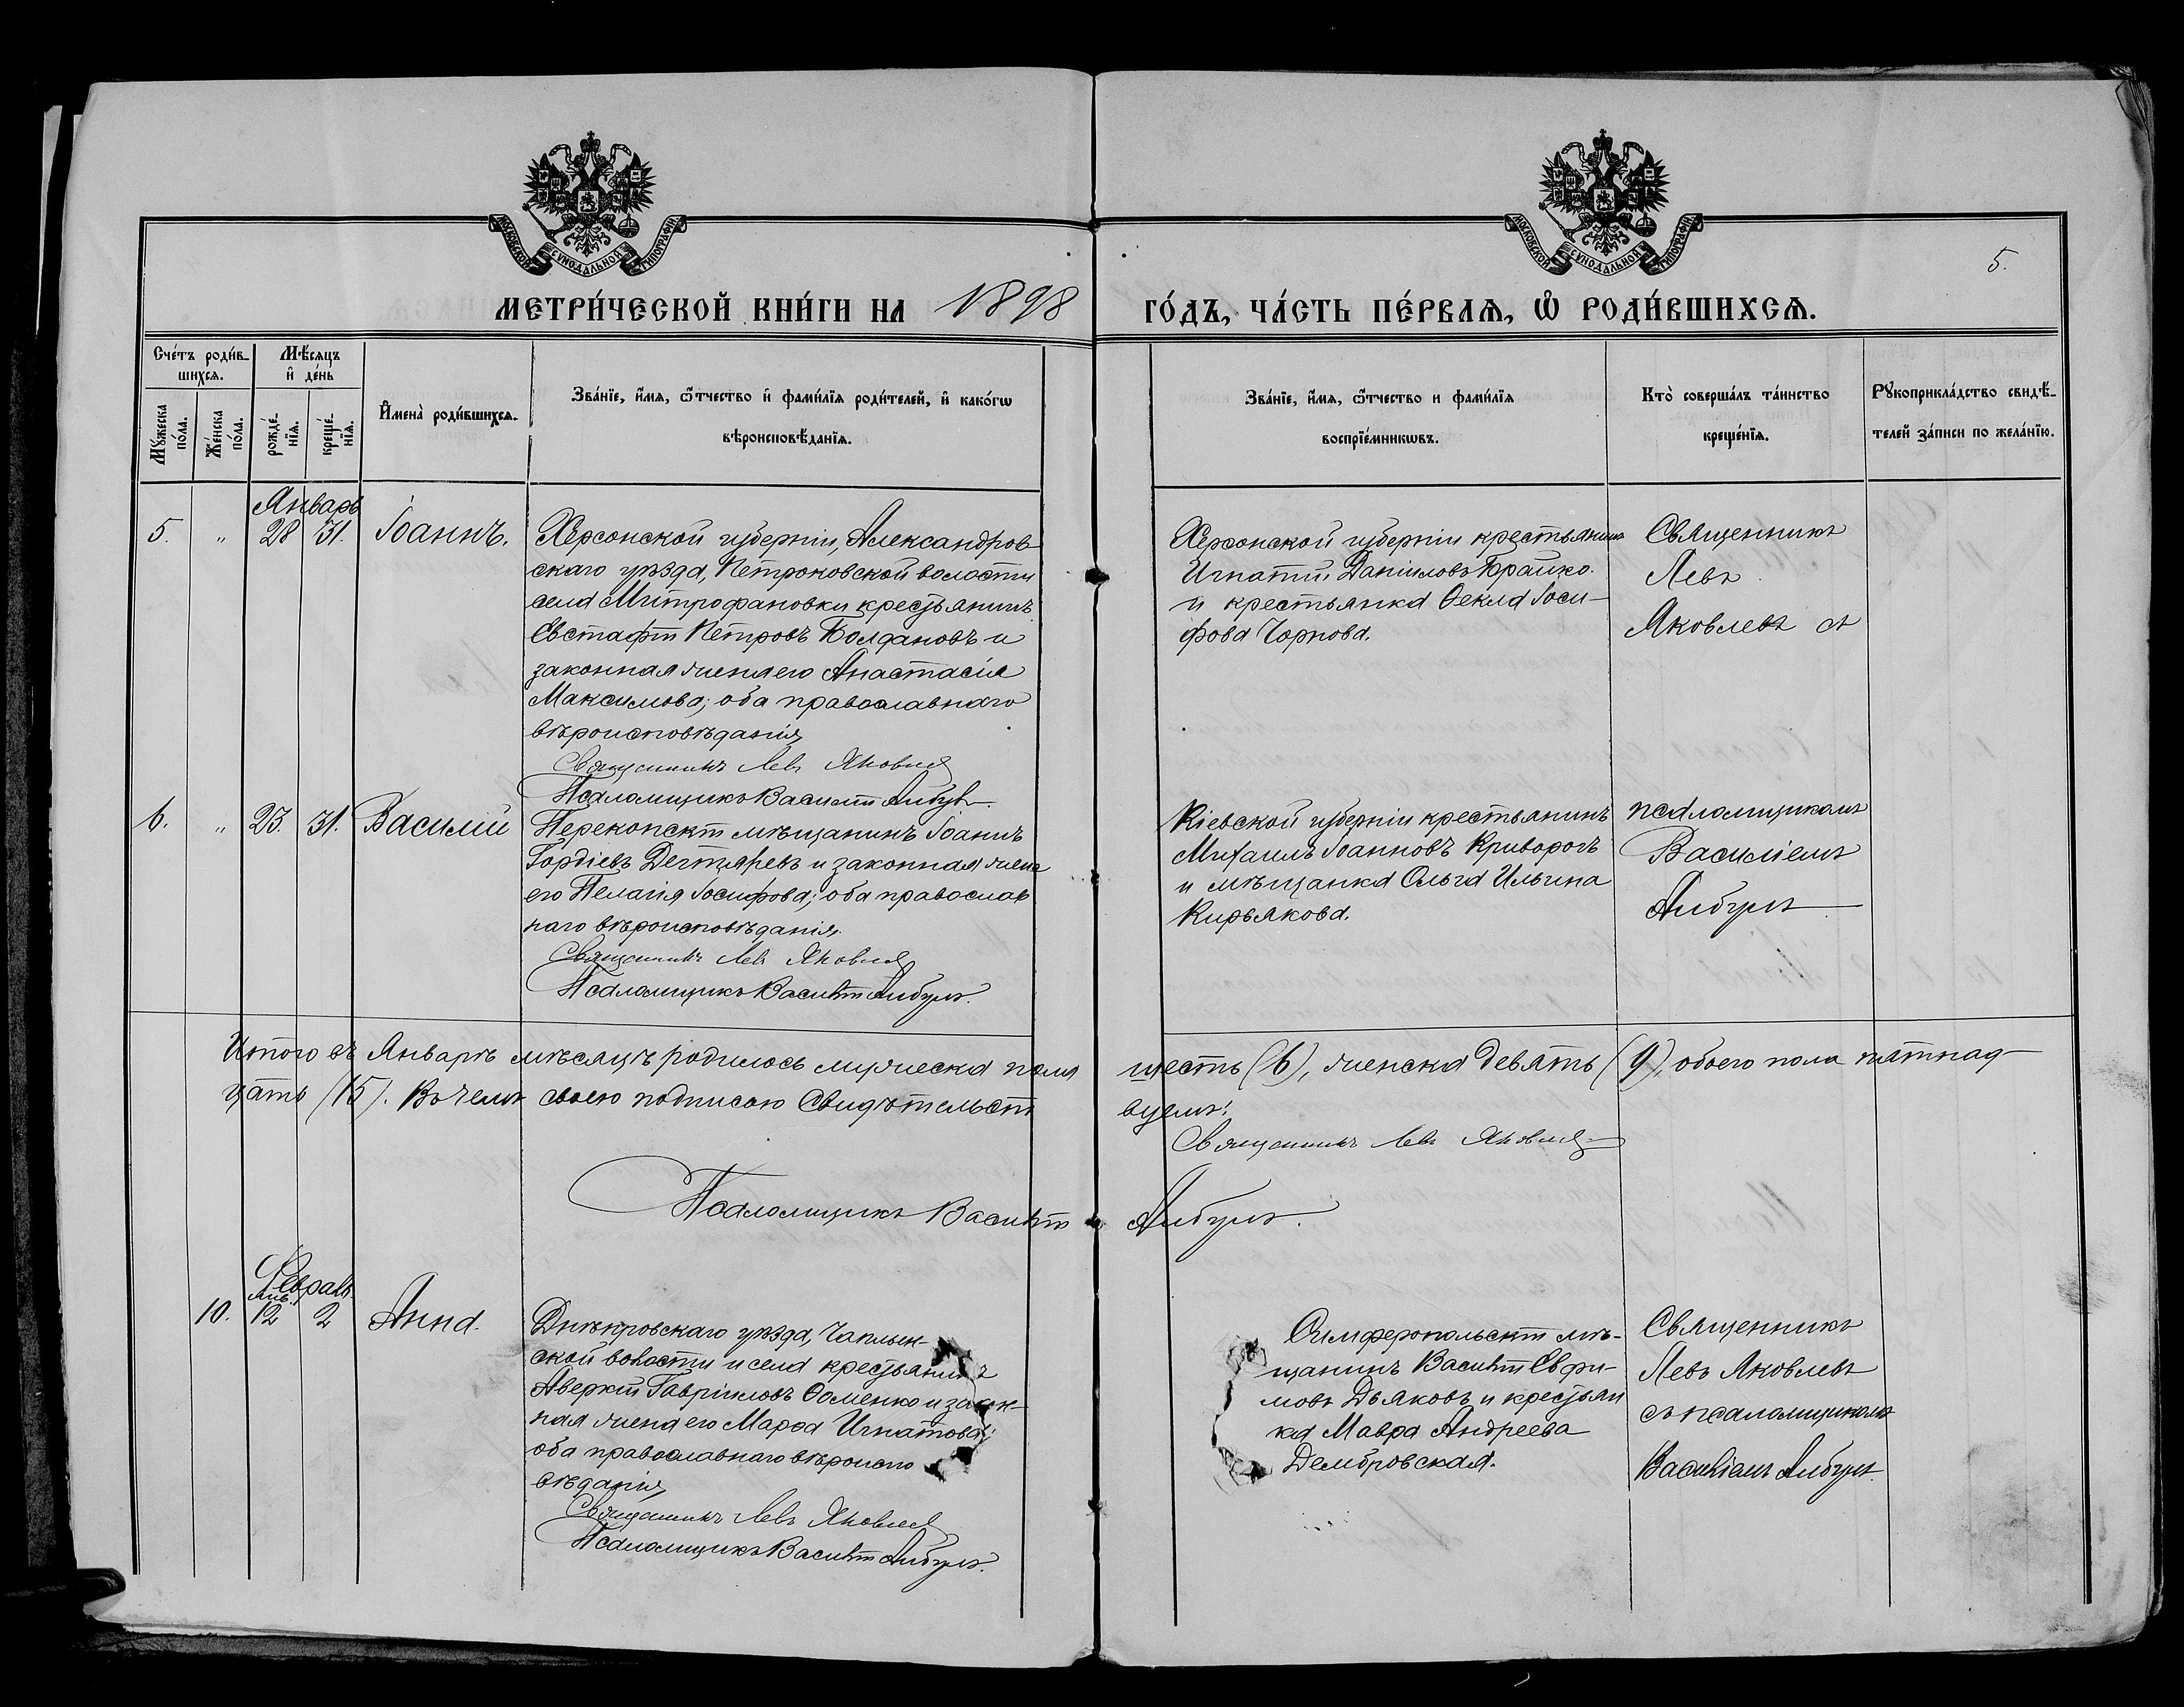 МОСКОВСКОЙ СѴНОДАЛЬНОЙ ТИПОГРАФІИ
МОСКОВСКОЙ СѴНОДАЛЬНОЙ ТИПОГРАФІИ
5.
МЕТРИ́ЧЕСКОЙ КНИ́ГИ НА 1898
ГО́ДЪ, ЧА́СТЬ ПЕ́РВАѦ, Ѽ РОДИ́ВШИХСѦ.
Сче́тъ роди́в-
шихсѧ.
Мѣ́сѧцъ
и҆ де́нь
Мꙋ́жеска по́ла.
Же́нска по́ла.
рожде́-нїѧ.
креще́-нїѧ.
И҆мена̀ роди́вшихсѧ.
Зва́нїе, и҆́мѧ, ѻ҆́тчество и҆ фами́лїѧ роди́телей, и҆ како́гѡ
вѣроисповѣ́данїѧ.
Зва́нїе, и҆́мѧ, ѻ҆́тчество и фами́лїѧ
воспрїе́мникѡвъ.
Кто̀ соверша́лъ та́инство
креще́нїѧ.
Рꙋкоприкла́дство свидѣ́-
телей за́писи по жела́нїю.
Январь
5. " 28 31. Іоаннъ.
Херсонской губерніи, Александров-
скаго уѣзда, Петроковской волости
села Митрофановки крестьянинъ
Евстафій Петровъ Болдановъ и
законная жена его Анастасія
Максимова; оба православнаго
вѣроисповѣданія
Священникъ Левъ Яковлевъ
Псаломщикъ Василій Албулъ
Херсонской губерніи крестьянинъ
Игнатій Даніиловъ Брайко
и крестьянка Ѳекла Іоси-
фова Чорнова.
Священникъ
Левъ
Яковлевъ съ
6. " 23. 31. Василій
Перекопскій мѣщанинъ Іоаннъ
Гордіевъ Дегтяревъ и законная жена
его Пелагія Іосифова; оба православ
наго вѣроисповѣданія.
Священникъ Левъ Яковлевъ
Псаломщикъ Василій Албулъ.
Кіевской губерніи крестьянинъ
Михаилъ Іоанновъ Криворогъ
и мѣщанка Ольга Ильина
Кирьякова.
псаломщикомъ
Василіемъ
Албулъ
Итого въ Январѣ мѣсяцѣ родилось мужеска пола шесть (6), женска девять (9), обоего пола пятнад-
цать (15). Въ чемъ своею подписью Свидѣтельст вуемъ:
Священникъ Левъ Яковлевъ
Псаломщикъ Василій Албулъ.
Февраль.
Янв.
10. 12 2 Анна.
Днѣпровскаго уѣзда, Чаплын-
ской волости и села крестьянинъ
Аверкій Гавріиловъ Ѳоменко и закон-
ная жена его Марѳа Игнатова;
оба православнаго вѣроиспо
вѣданія
Священникъ Левъ Яковлевъ
Псаломщикъ Василій Албулъ.
Симферопольскій мѣ-
щанинъ Василій Евфи-
мовъ Дьяковъ и крестьян
ка Мавра Андреева
Дембровская.
Священникъ
Левъ Яковлевъ
съ псаломщикомъ
Василіемъ Албулъ.